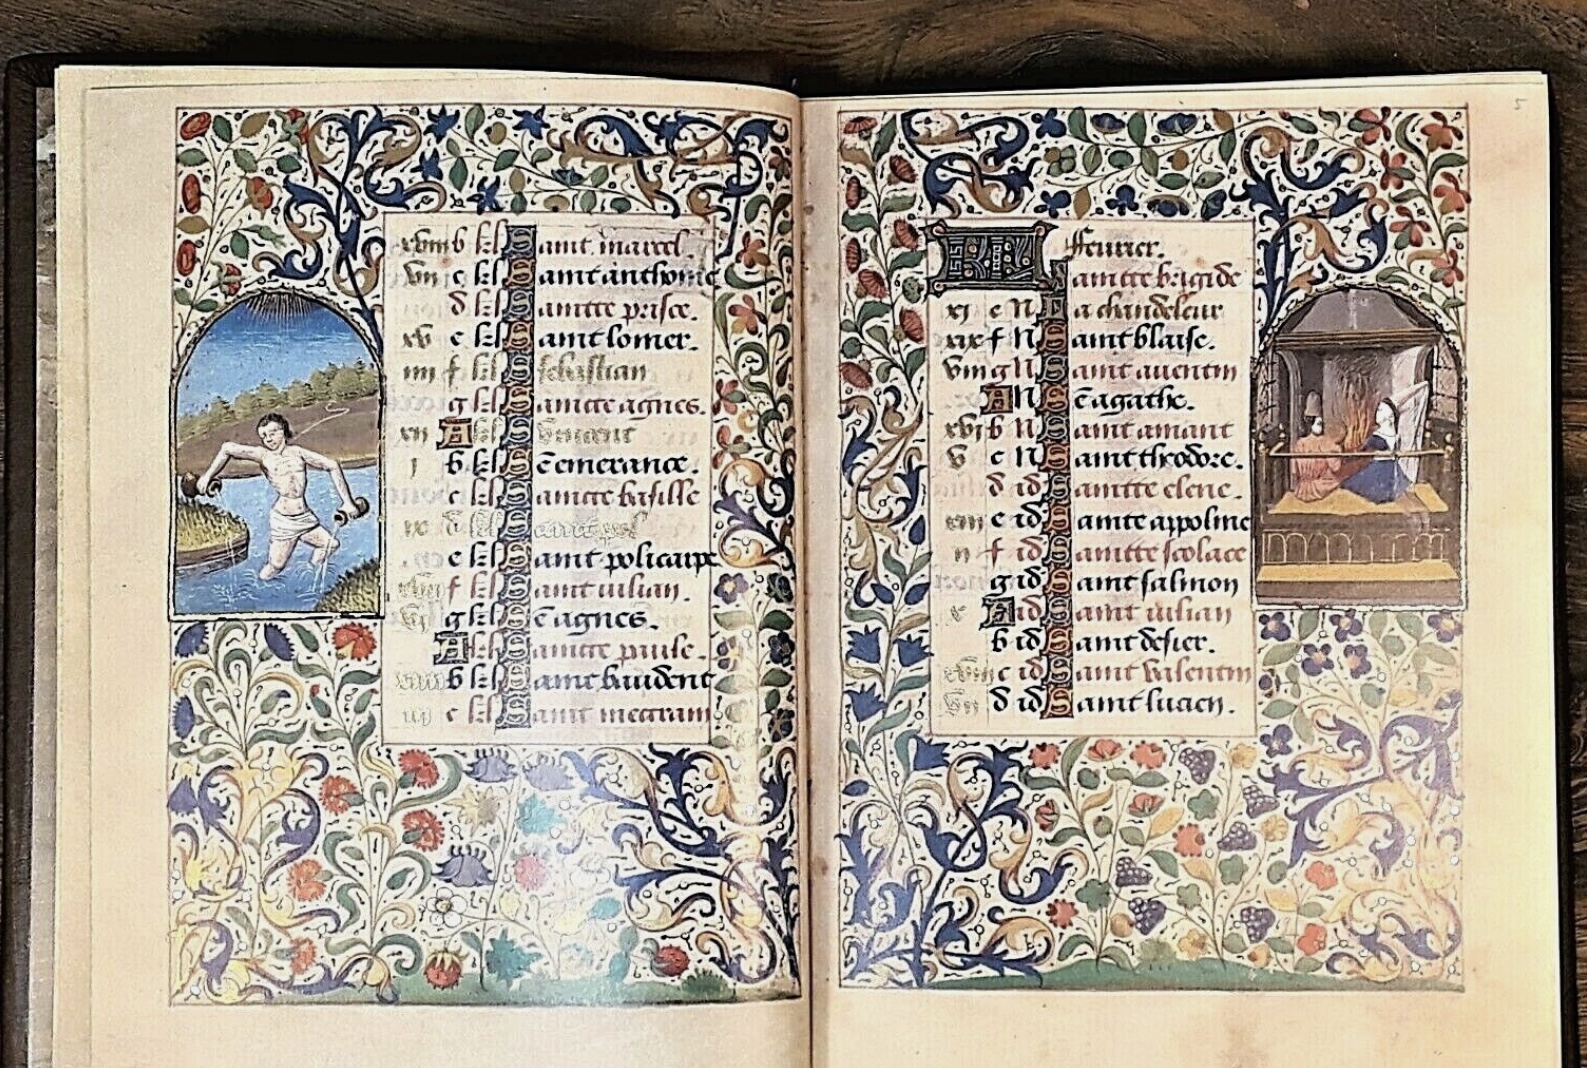 xviii b kl Saint marcel.
vii c kl Saint anthoine
d kl Saintte prisce.
xv e kl Saint lomer.
iiii f kl S sebastian
g kl Saintte agnes.
xii A kl S vincent
j b kl Sē emerance.
c kl Saintte basille
ix d kl Saint pol
e kl Saint policarpe
xvii f kl Saint iulian.
vj g kl Sē agnes.
A kl Saintte paule.
b kl Saint
iij c kl Saint
5
KL feurier.
Saintte brigide
xj e N La chandeleur
xix f N Saint blaise.
viii g N Saint auentin
A N Sē agathe.
xvj b N Saint amant
v c N Saint theodore.
d id Saintte elene.
xiii e id Sainte appoline
ii f id Saintte scolace
g id Saint salmon
x A id Saint iulian
b id Saint desier.
xviii c id Saint valentin
vii d id Saint lucien.